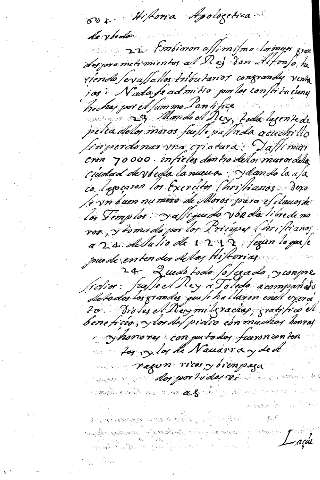 604. Historia Apologetica
de Vbeda.
22. Embiaron assimismo los moros gran
des prometimientos al Rey don Alfonso, ha
ziendose vassallos tributarios con grandes venta
jas: Nada se admitio por las constituciones
hechas por el summo Pontifice.
23. Mando el Rey, toda la gente de
pelea de los moros fuesse passada a cuchillo
sin perdonar una criatura: Y assi murie
ron 70000. infieles dentro de los muros de la
ciudad de Vbeda la nueva, y dando la a sa
co, los Exercitos Christianos. Dexo
se un buen numero de Moros para esclavos de
los Templos: y assi quedo Vbeda libre de mo
ros, y tomada por los Principes Christianos,
a 24. de Julio de 1212. segun lo que se
puede entender de las Historias.
24. Quando todo sosegado, y compue
sto: fuesse el Rey a Toledo acompañado
de todos los grandes que se hallaron en el exerci
to. Dioles el Rey mil gracias, gratifico el
beneficio, y los despidio con muchas honras
y honores: con que todos fueron conten
tos, y los de Nauarra, y de A
ragon ricos, y bien paga
dos por todas vi
as